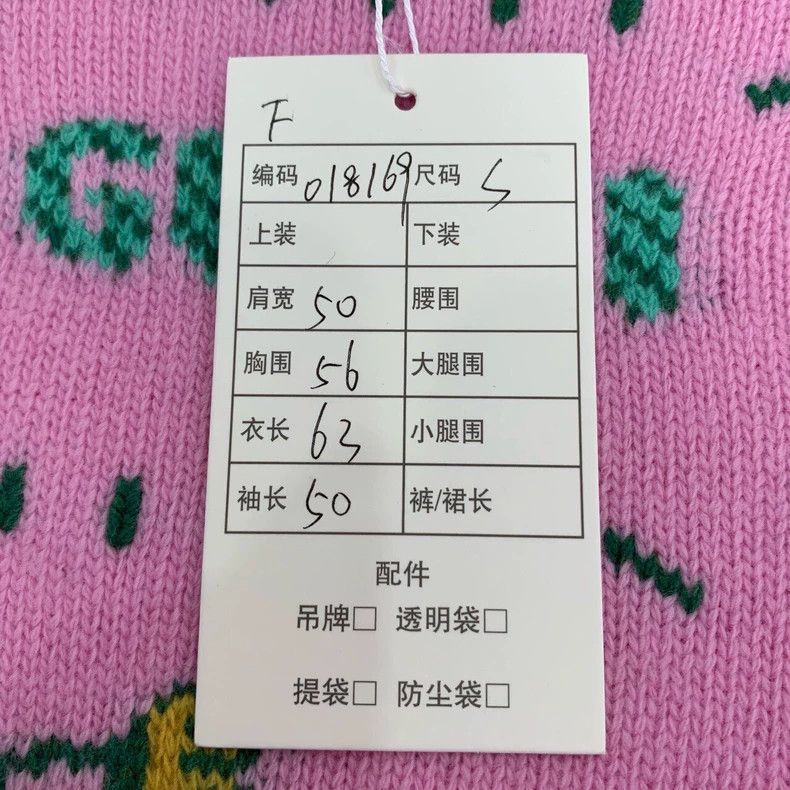 F
编码 018169 尺码 S
上装 下装
肩宽 50 腰围
胸围 56 大腿围
衣长 63 小腿围
袖长 50 裤/裙长
配件
吊牌□ 透明袋□
提袋□ 防尘袋□